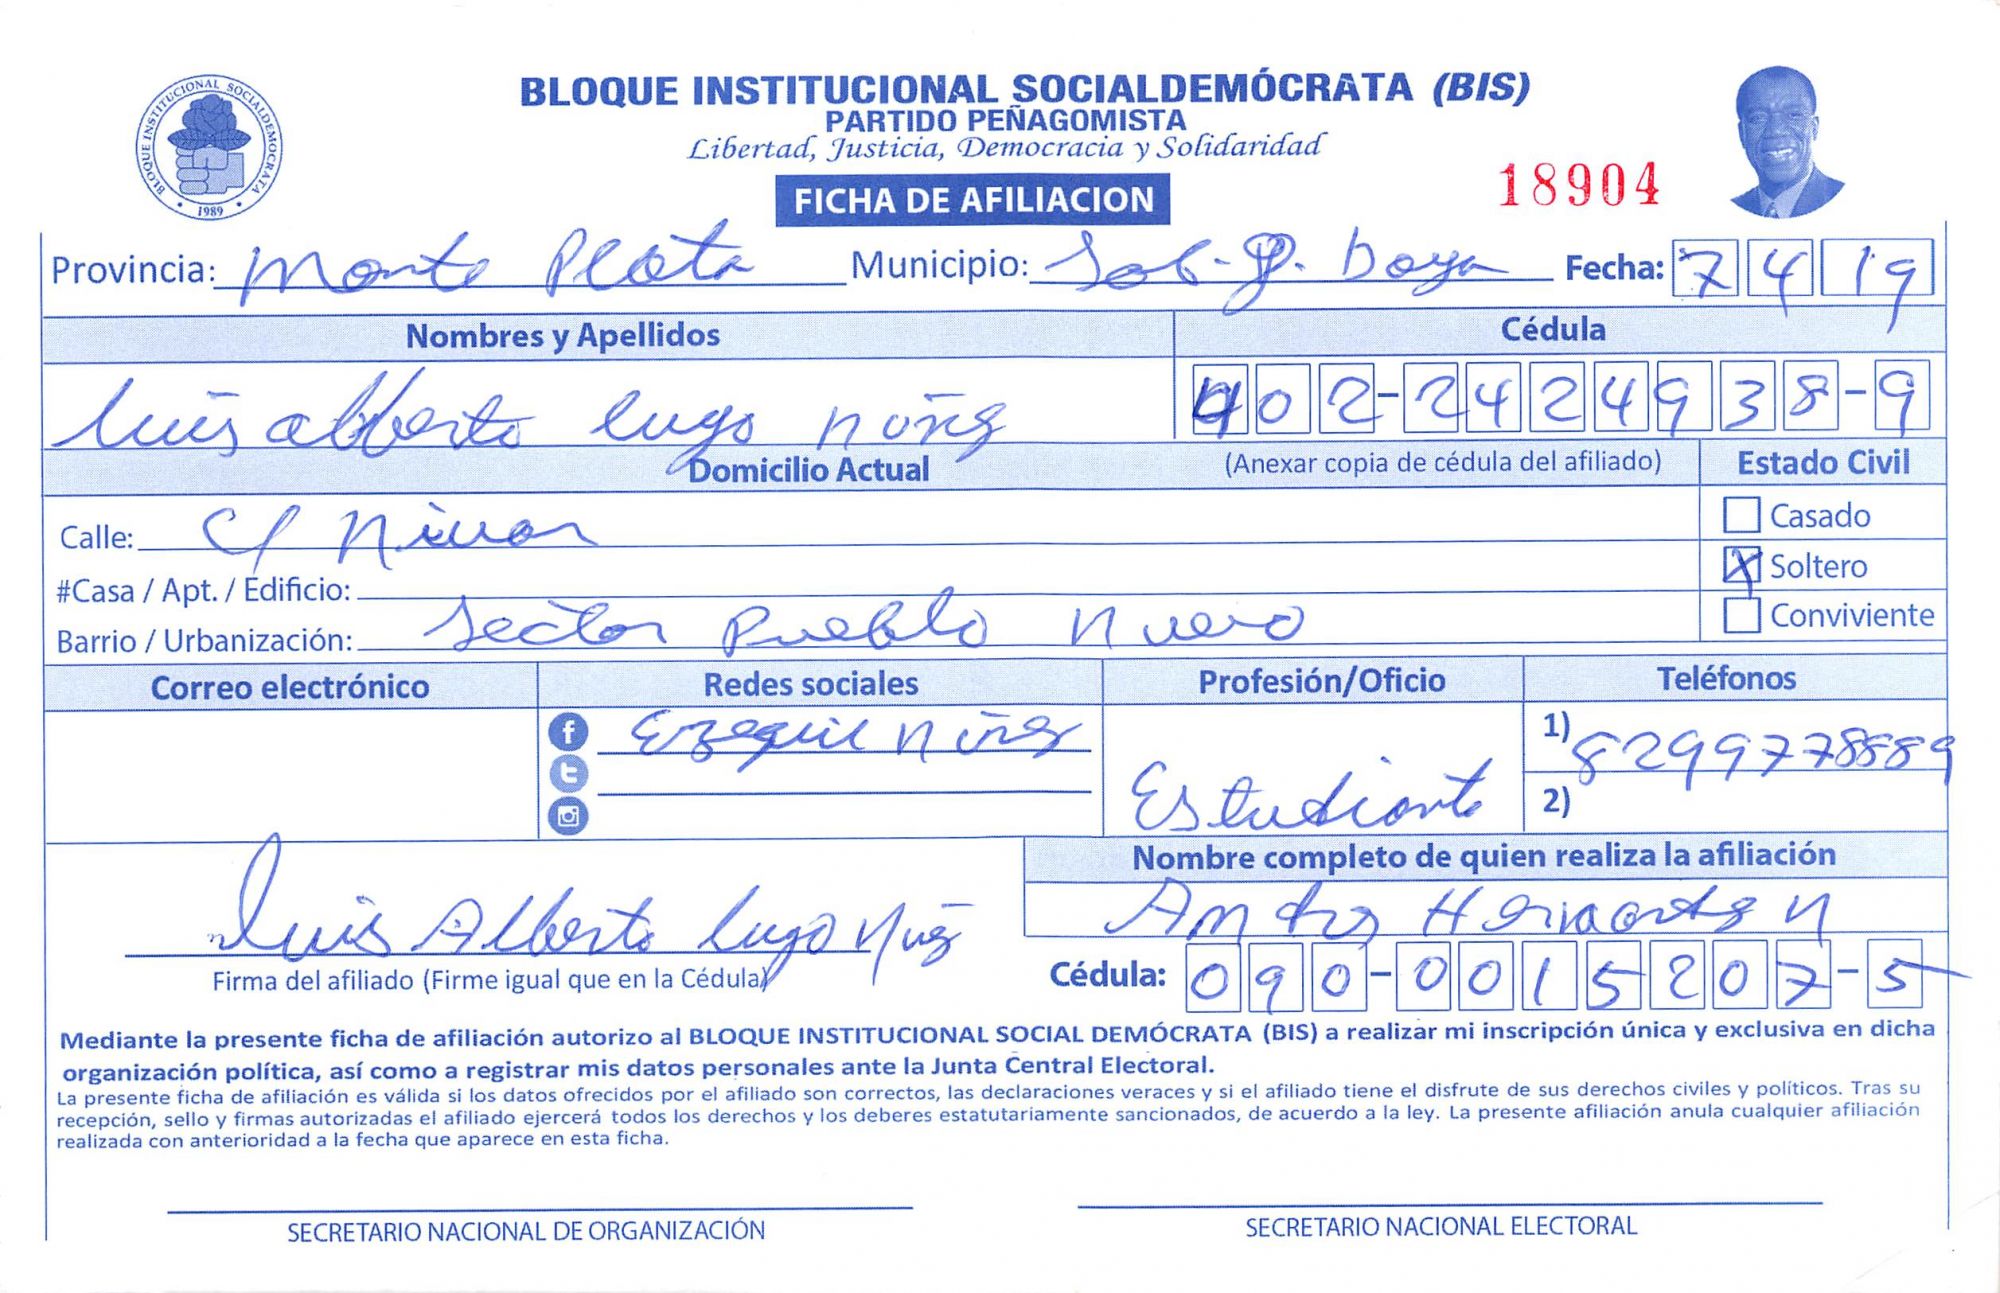 BLOQUE INSTITUCIONAL SOCIALDEMOCRATA
1989
BLOQUE INSTITUCIONAL SOCIALDEMÓCRATA (BIS)
PARTIDO PEÑAGOMISTA
Libertad, Justicia, Democracia y Solidaridad
FICHA DE AFILIACION
18904
Provincia: Monte Plata Municipio: Sab. G. Boya Fecha: 7 4 19
Nombres y Apellidos Cédula
Luis alberto lugo nuñez 402-2424938-9
Domicilio Actual (Anexar copia de cédula del afiliado) Estado Civil
Casado
Calle: C/
X Soltero
#Casa / Apt. / Edificio:
Conviviente
Barrio / Urbanización: Sector Pueblo nuevo
Correo electrónico Redes sociales Profesión/Oficio Teléfonos
f Ezequiel nuñez Estudiante 1) 8299778889
2)
Nombre completo de quien realiza la afiliación
Luis Alberto Lugo Nuñez
N
Firma del afiliado (Firme igual que en la Cédula)
Cédula: 090-0015207-5
Mediante la presente ficha de afiliación autorizo al BLOQUE INSTITUCIONAL SOCIAL DEMÓCRATA (BIS) a realizar mi inscripción única y exclusiva en dicha
organización política, así como a registrar mis datos personales ante la Junta Central Electoral.
La presente ficha de afiliación es válida si los datos ofrecidos por el afiliado son correctos, las declaraciones veraces y si el afiliado tiene el disfrute de sus derechos civiles y políticos. Tras su
recepción, sello y firmas autorizadas el afiliado ejercerá todos los derechos y los deberes estatutariamente sancionados, de acuerdo a la ley. La presente afiliación anula cualquier afiliación
realizada con anterioridad a la fecha que aparece en esta ficha.
SECRETARIO NACIONAL DE ORGANIZACIÓN SECRETARIO NACIONAL ELECTORAL